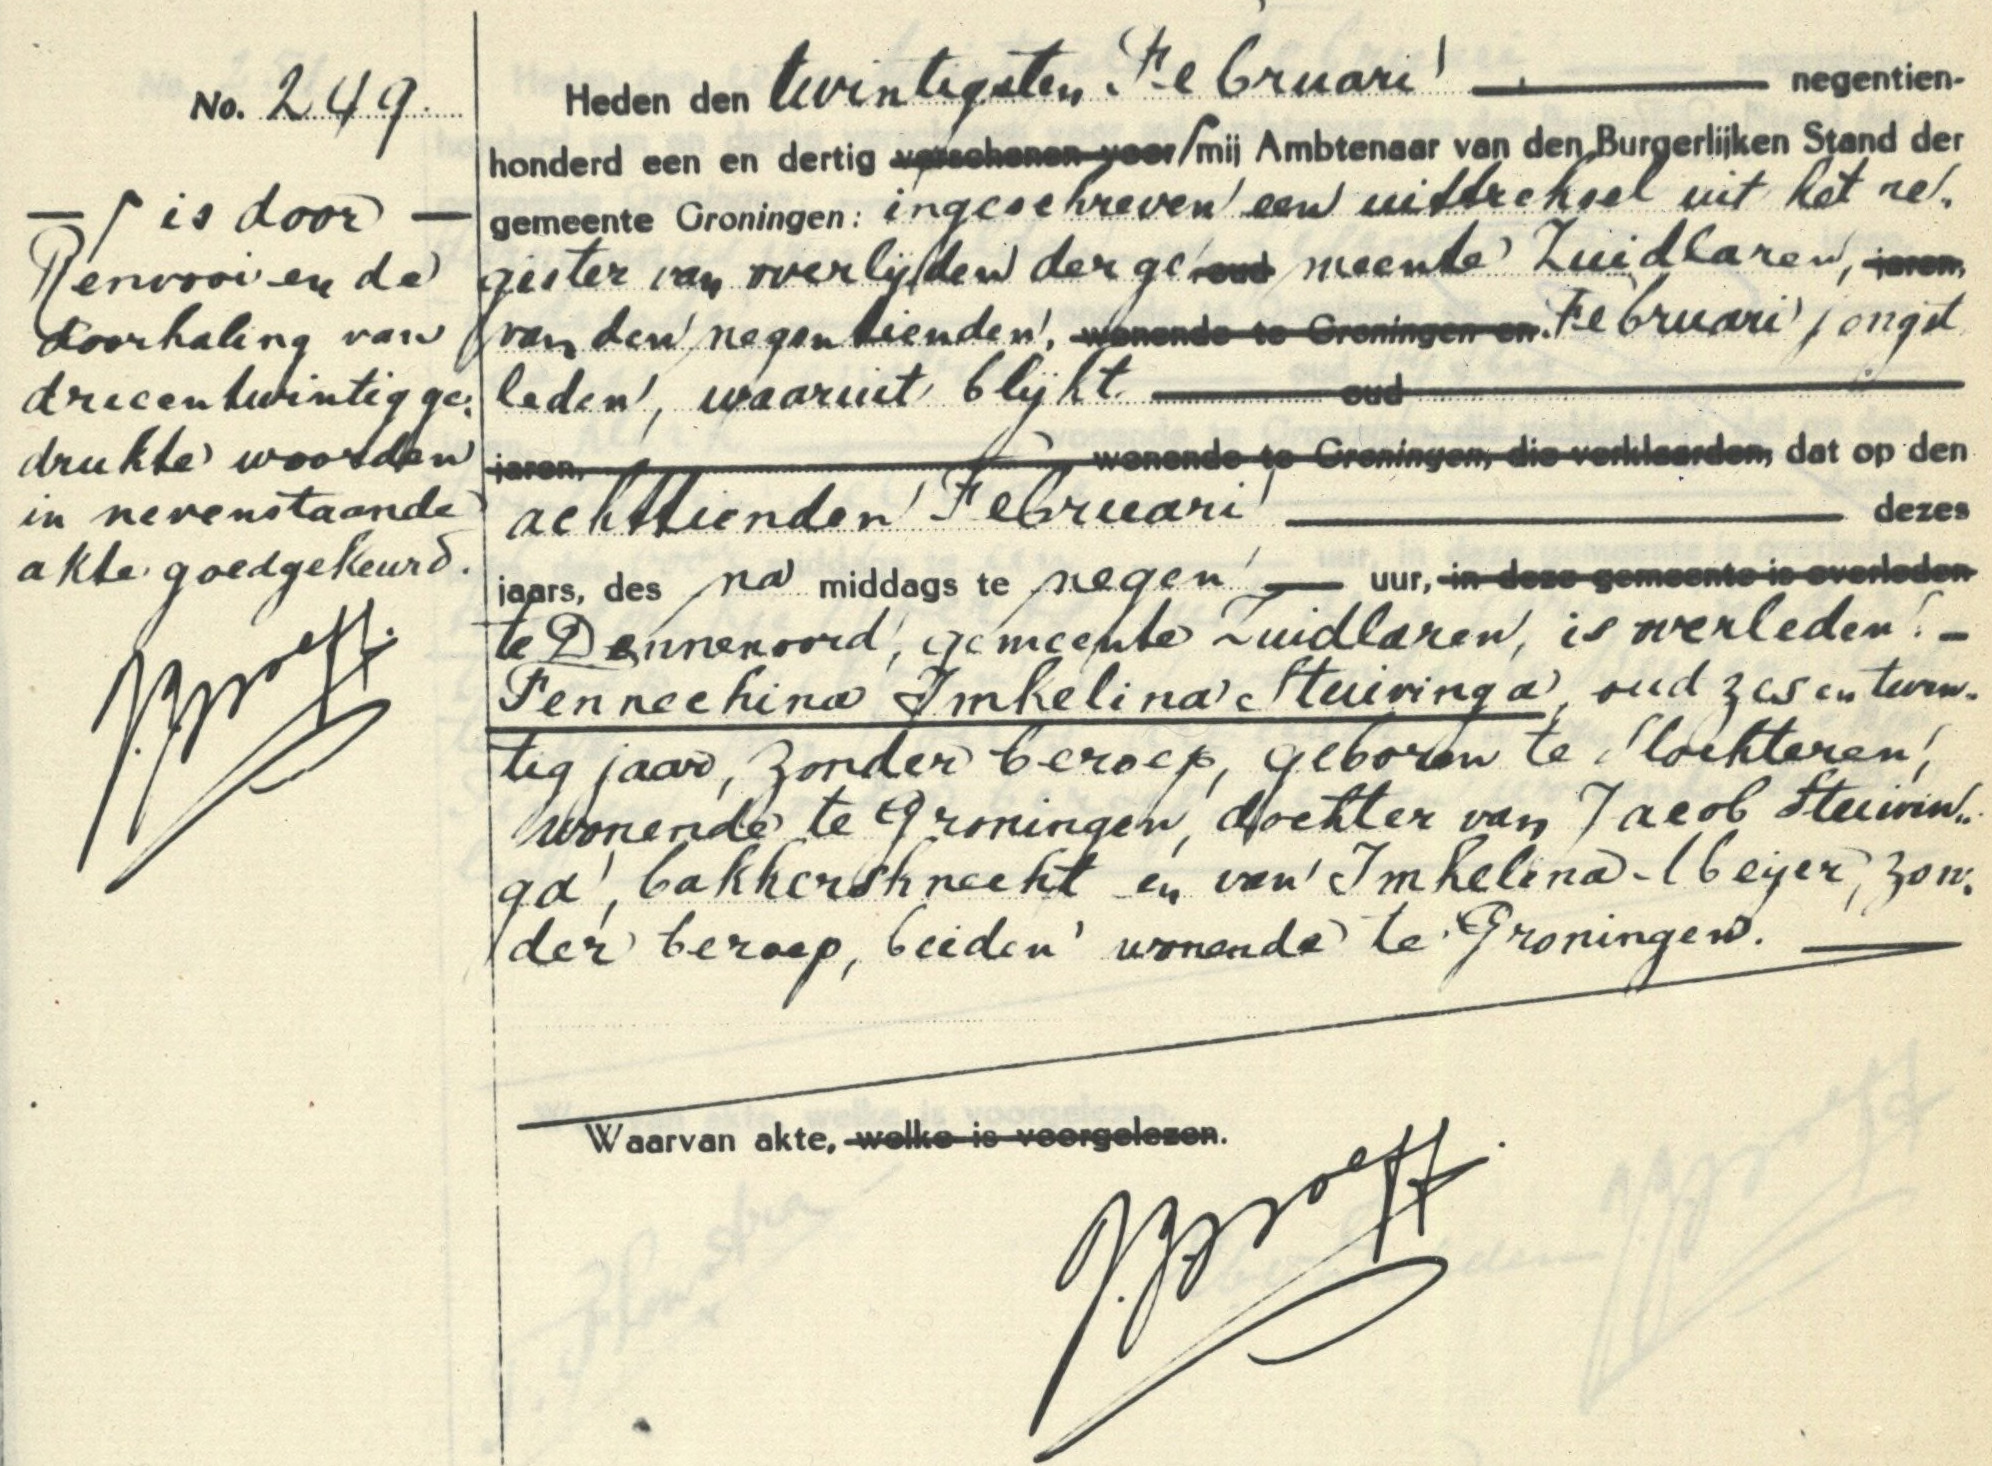 No. 249.
⌈ is door
Renvooi en de
doorhaling van
drieentwintig ge-
drukte woorden
in nevenstaande
akte goedgekeurd.
Heden den twintigsten Februari negentien-
honderd een en dertig verschenen voor ⌈ mij Ambtenaar van den Burgerlijken Stand der
gemeente Groningen: ingeschreven een uittreksel uit het re-
gister van overlijden der ge oud meente Zuidlaren, jaren,
van den negentienden, wonende te Groningen en Februari jongst
leden, waaruit blijkt oud
jaren, wonende te Groningen, die verklaarden, dat op den
achttienden Februari dezes
jaars, des na middags te negen uur, in deze gemeente is overleden
te Dennenoord, gemeente Zuidlaren, is overleden:
Fennechina Imkelina Stuivinga, oud zes en twin-
tig jaar, zonder beroep, geboren te Slochteren,
wonende te Groningen, dochter van Jacob Stuivin-
ga, bakkersknecht en van Imkelina Beijer, zon-
der beroep, beiden wonende te Groningen.
Waarvan akte, welke is voorgelezen.